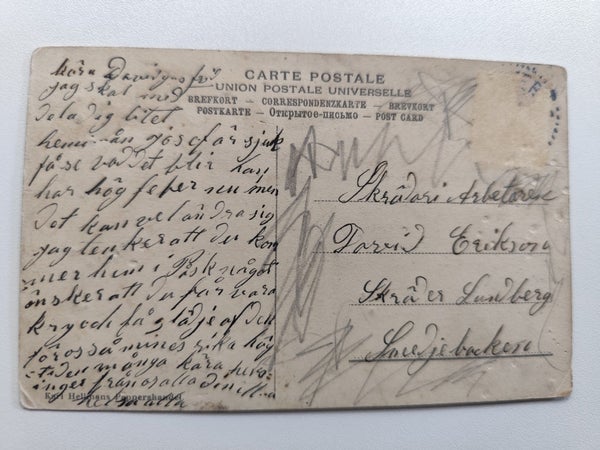 CARTE POSTALE
UNION POSTALE UNIVERSELLE
BREFKORT – CORRESPONDENZKARTE – BREVKORT
POSTKARTE – Открытое письмо – POST CARD
kära
jag skal med
dela dig litet
hemifrån gösef är sjuk
få se va det blir han
har hög feber nu men
det kan vel ändra sig
jag tenker att du kom
mer hem i Påsk något
önsker att du får vara
kry och få glädje af den
för oss så minesrika hög
tiden många kära
från oss alla
helsa alla
Skrädari Arbetaren
David Erikson
Skräder Lundberg
Smedjebacken
Karl Hellmans Pappershandel